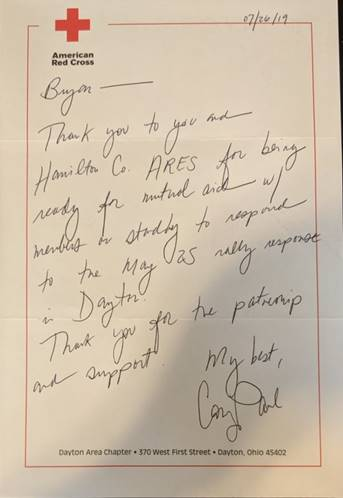 07/26/19
American
Red Cross
Bryan —
Thank you to you and
Hamilton Co. ARES for being
ready for mutual aid w/
members on standby to respond
to the May 25 rally response
in Dayton.
Thank you for the
and support.
My best,
Dayton Area Chapter • 370 West First Street • Dayton, Ohio 45402